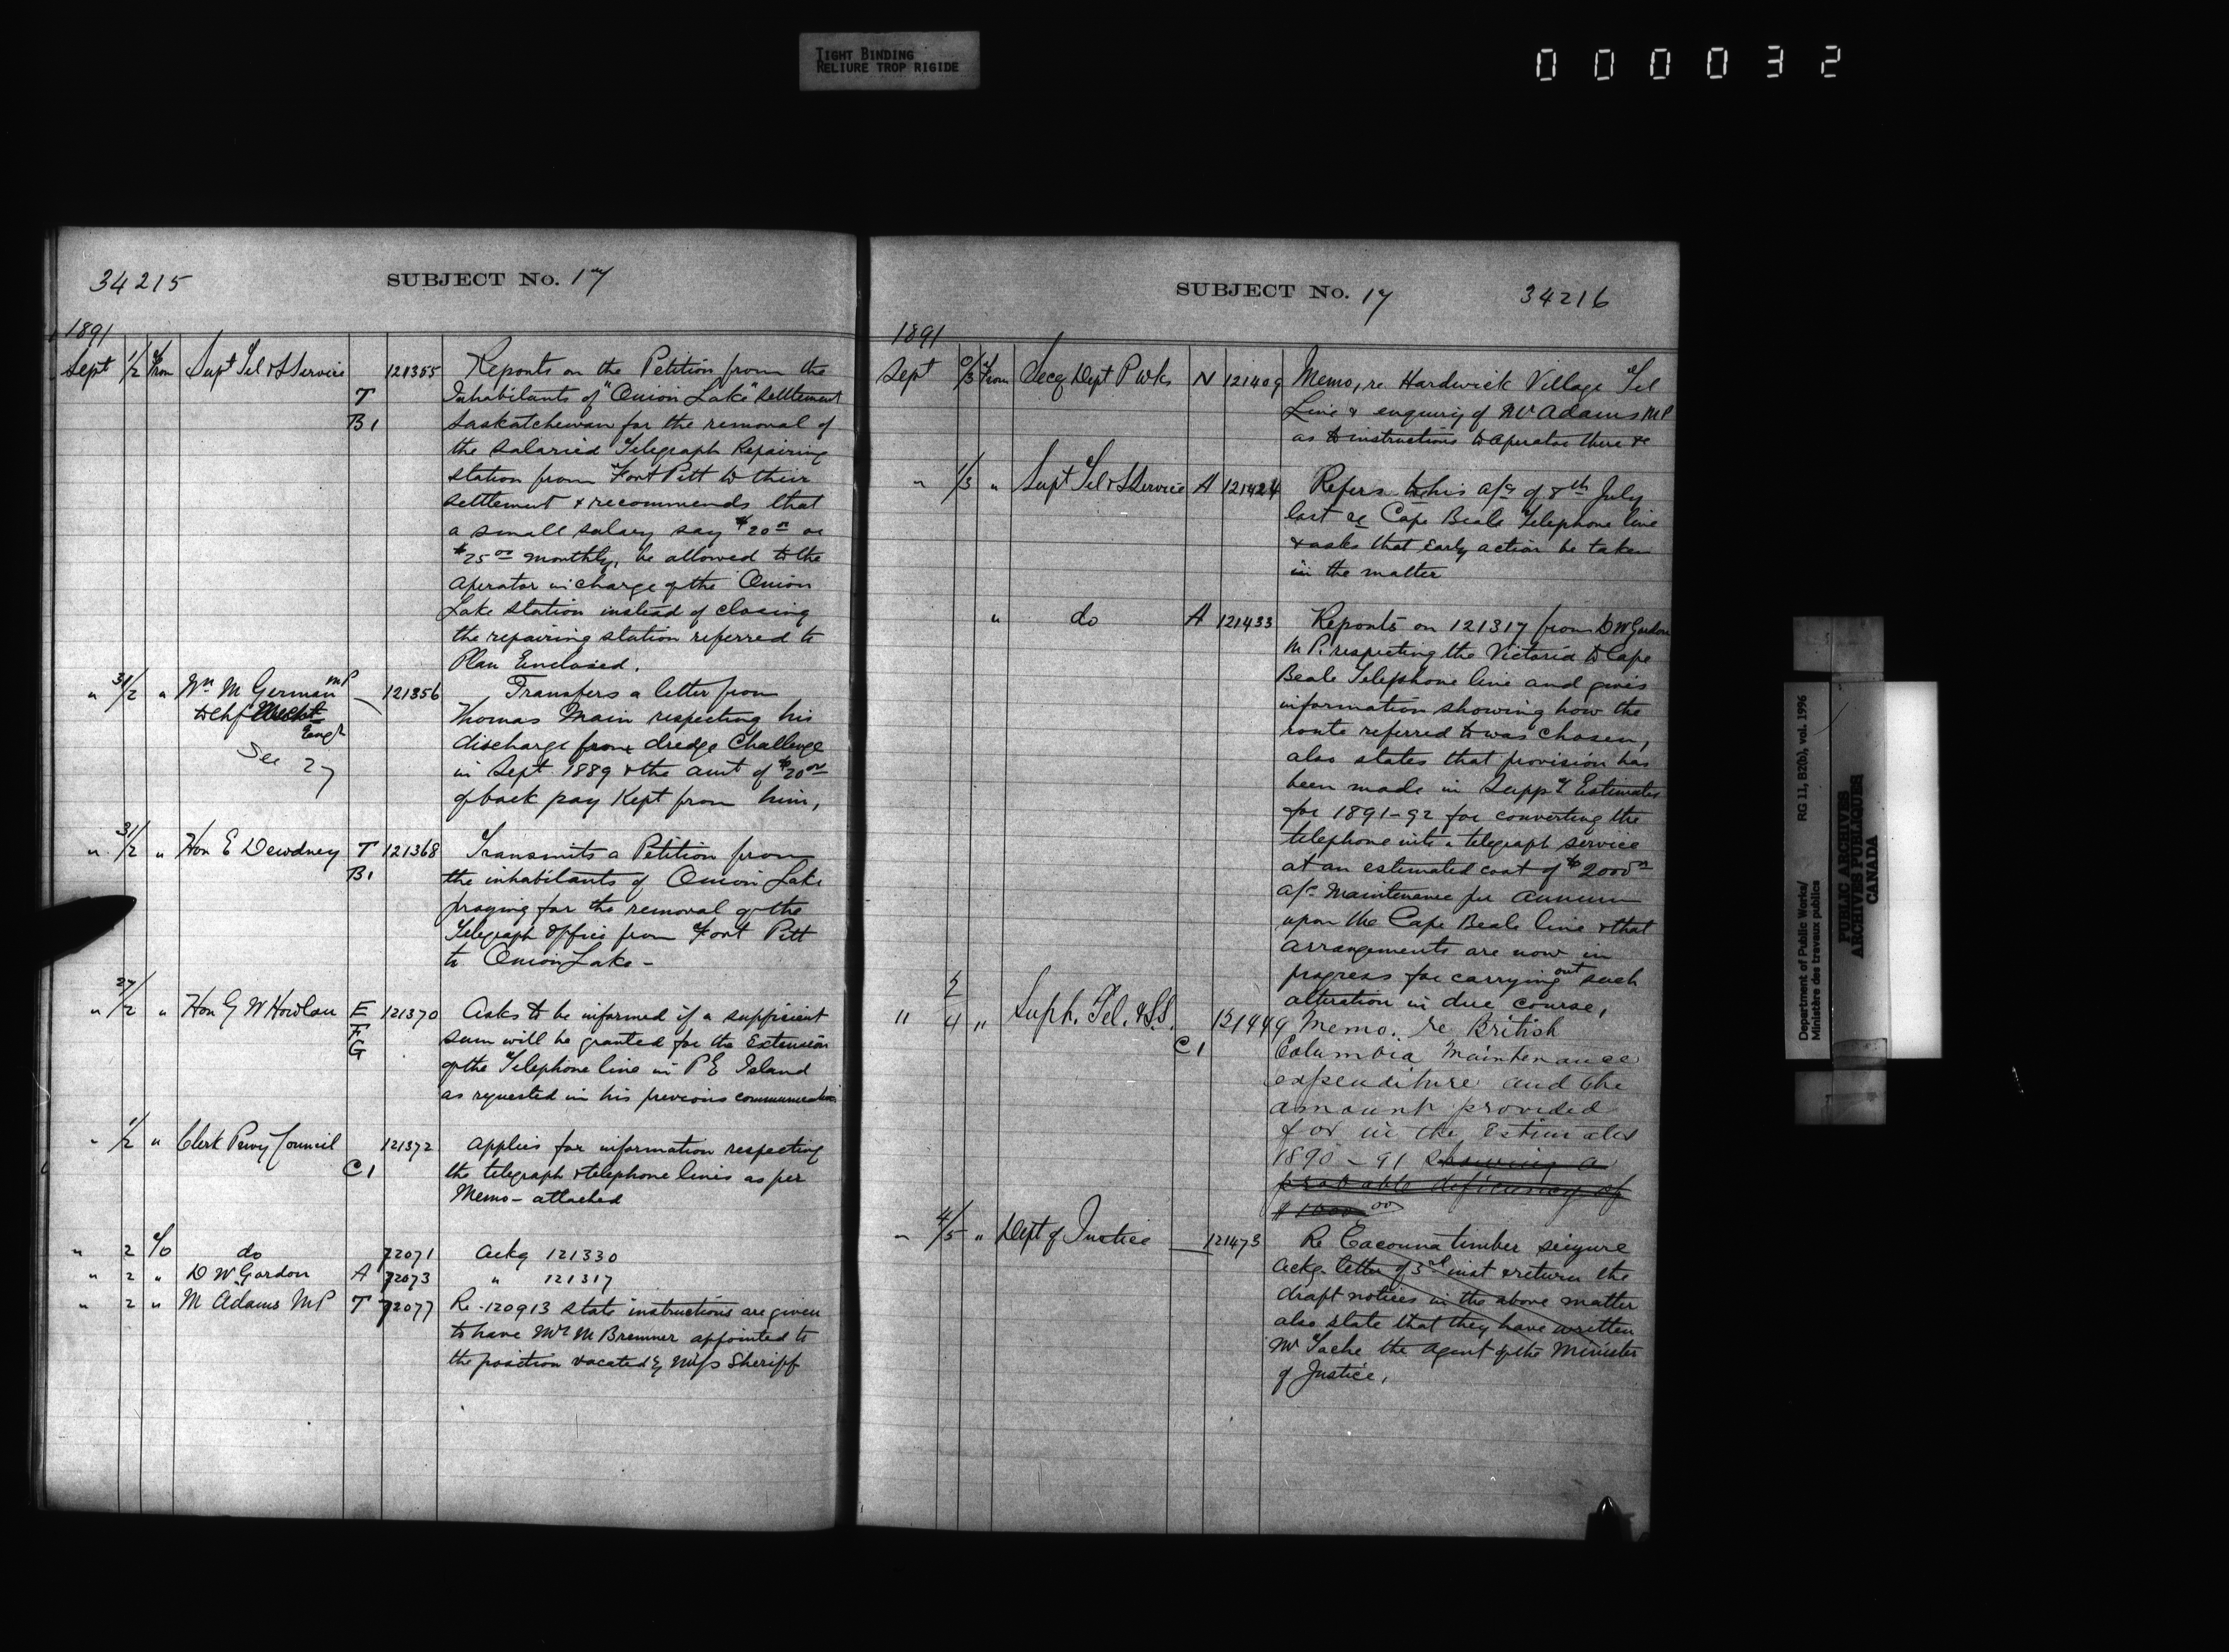 TIGHT BINDING
RELIURE TROP RIGIDE
000032
34215
SUBJECT No. 17
1891
Sept 1/2 From Supt Tel & S Service 121355 Reports on the Petition from the
T Inhabitants of "Onion Lake" Settlement
B1 Saskatchewan for the removal of
the salaried Telegraph Repairing
station from Fort Pitt to their
settlement & recommends that
a small salary say $20 00 or
$25 00 monthly, be allowed to the
operator in charge of the Onion
Lake station instead of closing
the repairing station referred to
Plan Enclosed.
" 31/2 " Wm M German MP — 121356 Transfers a letter from
to Chf Archt Thomas Main respecting his
Engr discharge from dredge Challenge
See 27 in Sept 1889 & the amt of $20 00
of back pay Kept from him,
" 31/2 " Hon E Dewdney T 121368 Transmits a Petition from
B1 the inhabitants of Onion Lake
praying for the removal of the
Telegraph Office from Fort Pitt
to Onion Lake -
" 27/2 " Hon G W Howlan E 121370 Asks to be informed if a sufficient
F sum will be granted for the Extension
G of the Telephone line in P E Island
as requested in his previous communication
" 1/2 " Clerk Privy Council 121372 Applies for information respecting
C1 the telegraph & telephone lines as per
Memo - attached
" 2 To do 72071 Ackg 121330
" 2 " D W Gordon A 72073 " 121317
" 2 " M Adams MP T 72077 Re 120913 state instructions are given
to have Mr M Bremner appointed to
the position vacated by Miss Sheriff
SUBJECT No. 17
34216
1891
Sept 0/3 From Secy Dept P Wks N 121409 Memo, re Hardwick Village Tel
Line & enquiry of Mr Adams MP
as to instructions to operator there &c
" 1/3 " Supt Tel & S Service A 121424 Refers to his a/c of 8th July
last re Cape Beale Telephone line
& asks that early action be taken
in the matter
" do A 121433 Reports on 121317 from D W Gordon
M P. respecting the Victoria to Cape
Beale Telephone line and gives
information showing how the
route referred to was chosen,
also states that provision has
been made in Suppy Estimates
for 1891-92 for converting the
telephone into a telegraph service
at an estimated cost of $2000 00
a/c Maintenance per annum
upon the Cape Beale line & that
arrangements are now in
progress for carrying out such
alteration in due course,
" 2/4 " Supt. Tel. & S.S. 121449 Memo. re British
C1 Columbia Maintenance
expenditure and the
amount provided
for in the Estimates
1890-91 showing a
probable deficiency of
$1000 00
" 4/5 " Dept of Justice — 121473 Re Cacouna timber seizure
Ackg. letter of 3rd inst & return the
draft notices in the above matter
also state that they have written
Mr Tache the agent of the Minister
of Justice,
Department of Public Works/
Ministère des travaux publics
RG 11, B2(b), vol. 1996
PUBLIC ARCHIVES
ARCHIVES PUBLIQUES
CANADA